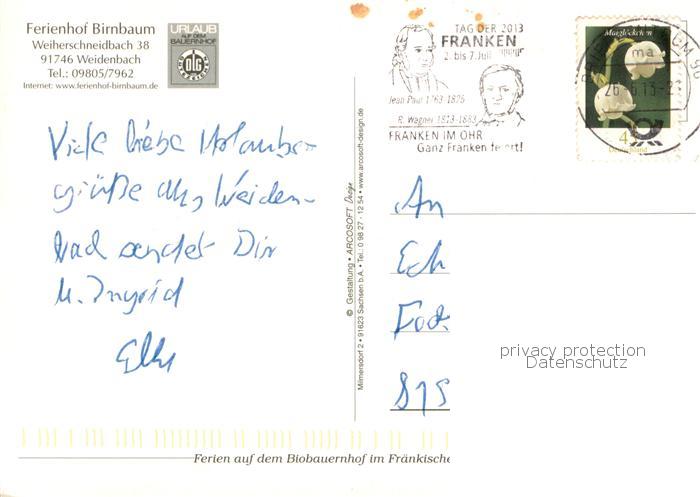 Ferienhof Birnbaum
Weiherschneidbach 38
91746 Weidenbach
Tel.: 09805/7962
Internet: www.ferienhof-birnbaum.de
URLAUB
AUF DEM
BAUERNHOF
DLG
Viele liebe Urlaubs-
grüße aus Weiden-
bach sendet Dir
u. Ingrid
Elke
© Gestaltung • ARCOSOFT Design
Milmersdorf 2 • 91623 Sachsen b.A. • Tel.: 0 98 27 - 12 54 • www.arcosoft-design.de
TAG DER 2013
FRANKEN
2. bis 7. Juli
Jean Paul 1763-1825
R. Wagner 1813-1883
FRANKEN IM OHR
Ganz Franken feiert!
Maiglöckchen
Deutschland
An
privacy protection
Datenschutz
Ferien auf dem Biobauernhof im Fränkische